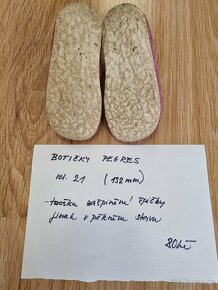 BOTIČKY PEGRES
vel. 21 (132mm)
- trošku zašpiněné špičky
jinak v pěkném stavu
80kč